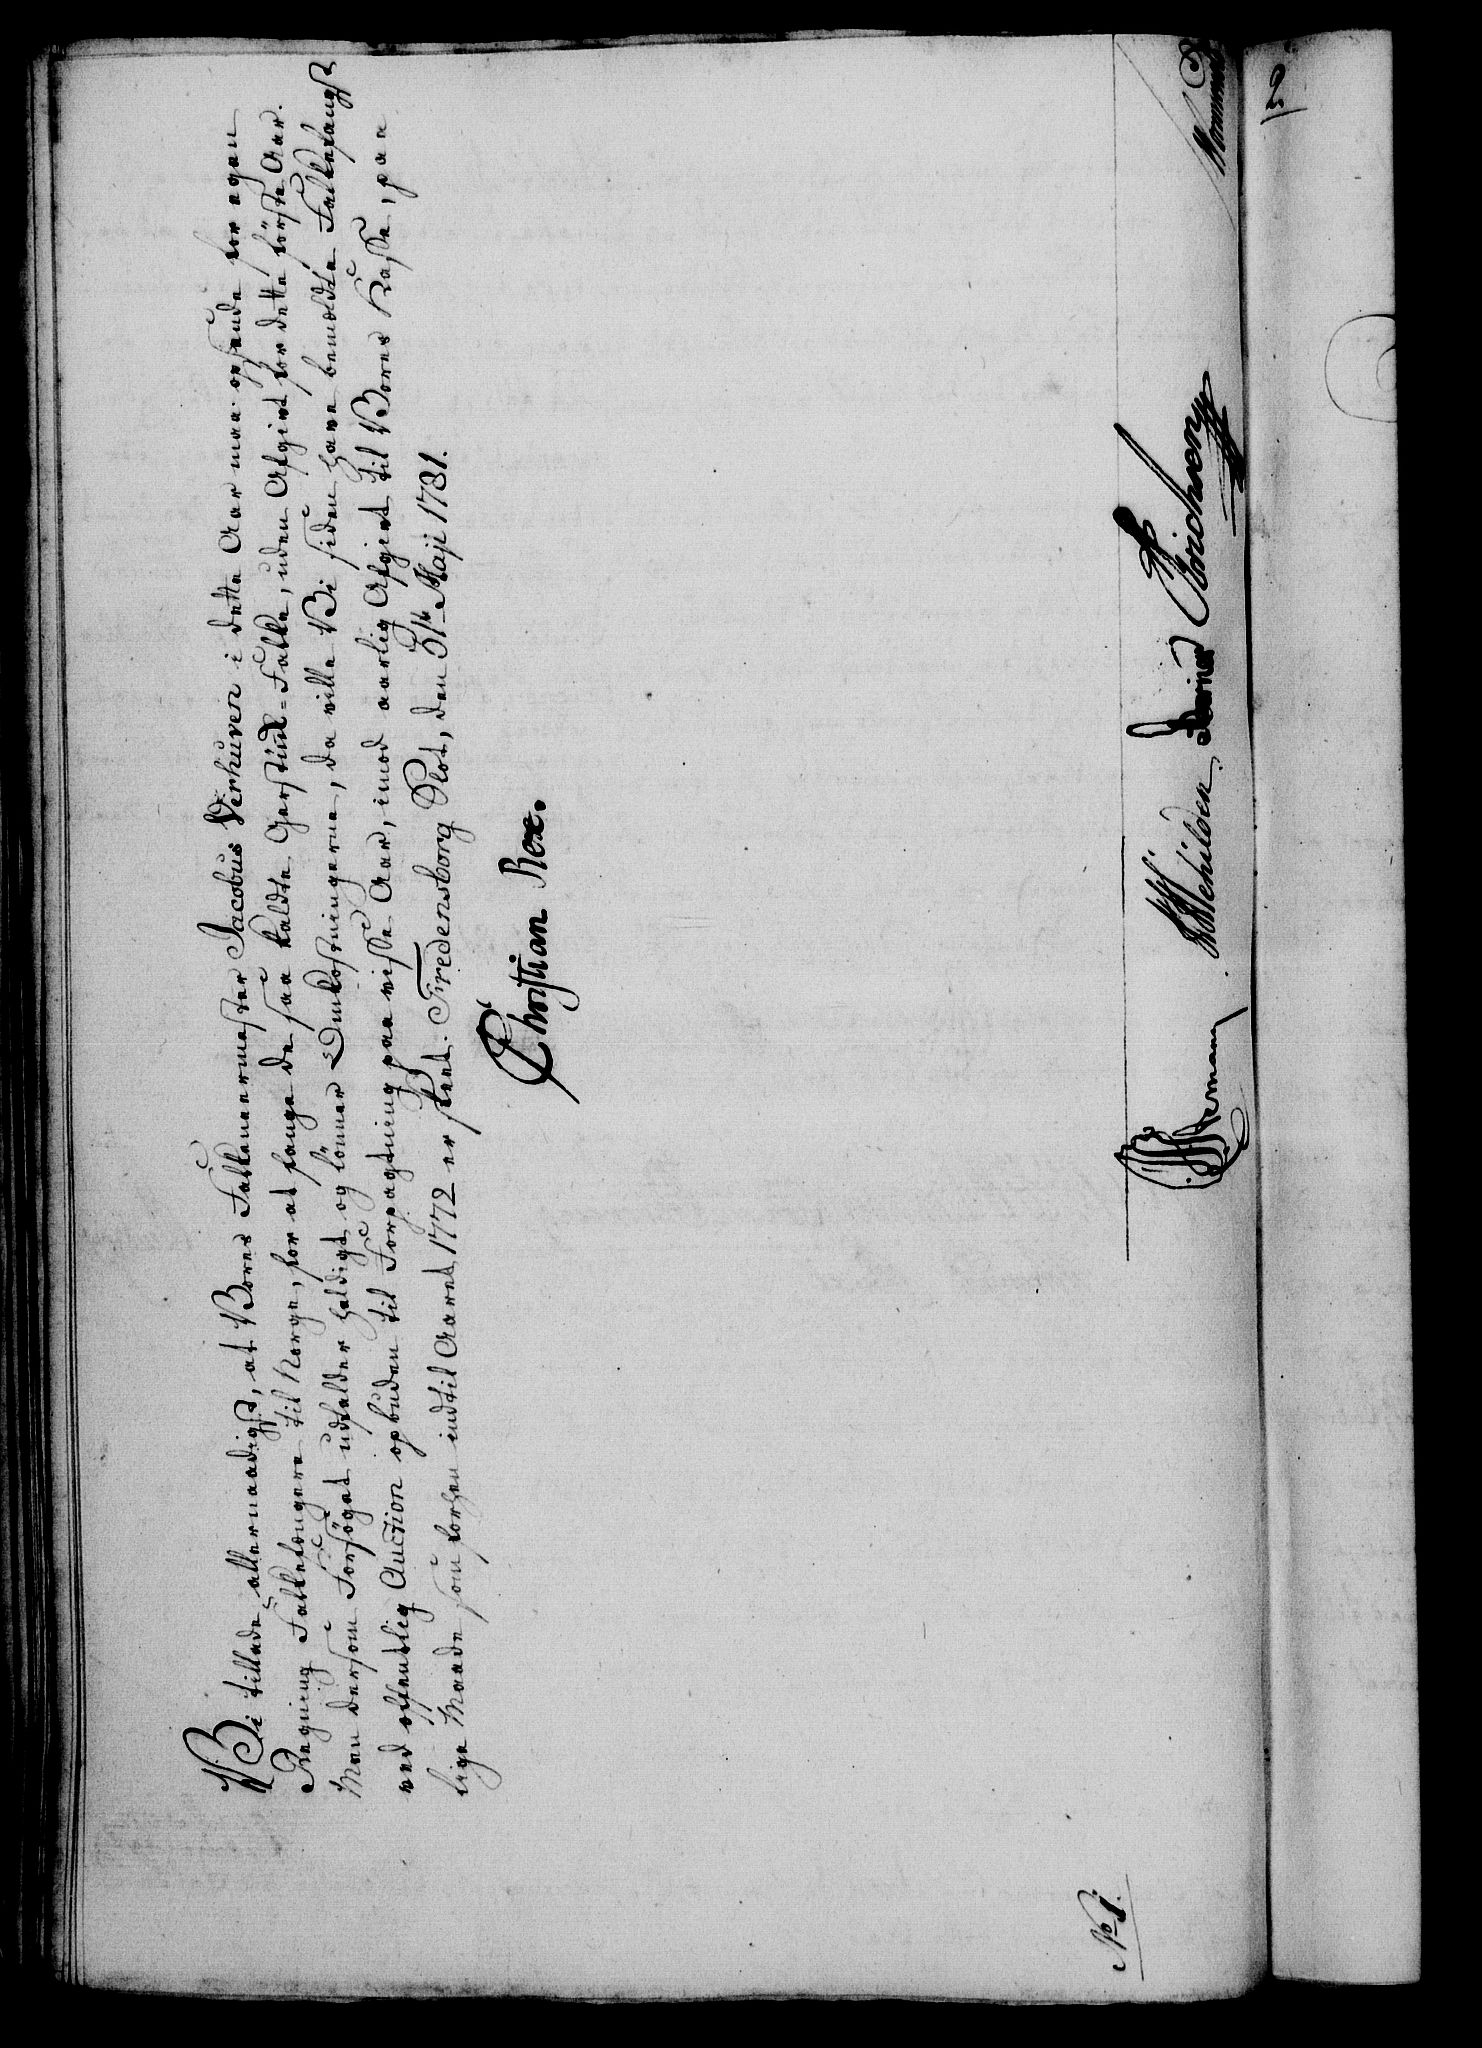 Vi tillade allernaadigst, at Vores Falkeneermester Jacobus Verhuven i dette Aar maa opsende for egen
Regning Falkefængere til Norge, for at fange de saa kaldte Gerstind-Falke, uden Afgivt for dette første Aar.
Men dersom Forsøget udfalder heldigt og lönner Omkostningerne, da ville Vi siden have bemeldte Falkefangst
ved offentlig Auction opbuden til Forpagtning paa visse Aar, imod aarlig Afgivt til Vores Kasse, paa
lige Maade som forhen indtil Aaret 1772 er skeet. Fredensborg Slot, den 31te Maji 1781.
Christian Rex.
Mehilden. Erichsen
No 1.